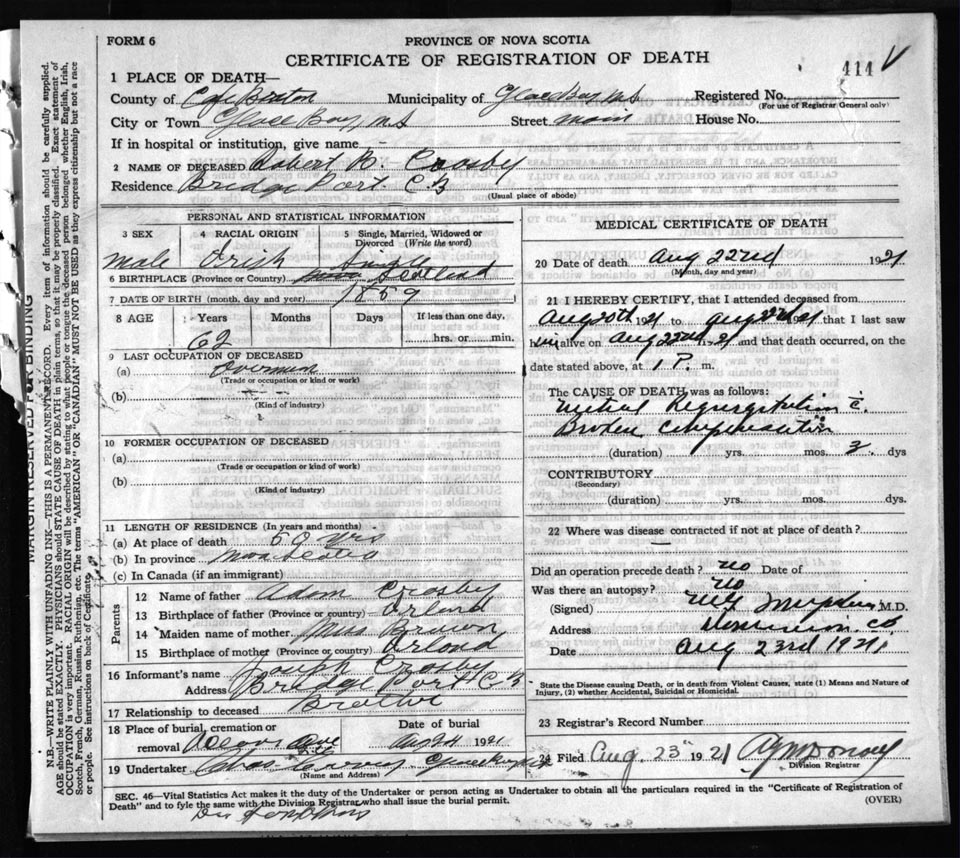 FORM 6
PROVINCE OF NOVA SCOTIA
CERTIFICATE OF REGISTRATION OF DEATH
414
1 PLACE OF DEATH—
County of Cape Breton Municipality of Glace Bay N.S Registered No.
(For use of Registrar General only)
City or Town Glace Bay, N.S Street Main House No.
If in hospital or institution, give name
2 NAME OF DECEASED Robert R. Crosby
Residence Bridge Port C B
(Usual place of abode)
PERSONAL AND STATISTICAL INFORMATION
3 SEX 4 RACIAL ORIGIN 5 Single, Married, Widowed or Divorced (Write the word)
Male Irish Single
6 BIRTHPLACE (Province or Country) Scotland
7 DATE OF BIRTH (month, day and year) 1889
8 AGE Years Months Days If less than one day,
62 hrs. or min.
9 LAST OCCUPATION OF DECEASED
(a) Overman
(Trade or occupation or kind or work)
(b)
(Kind of industry)
10 FORMER OCCUPATION OF DECEASED
(a)
(Trade or occupation or kind or work)
(b)
(Kind of industry)
11 LENGTH OF RESIDENCE (In years and months)
(a) At place of death 60 yrs
(b) In province Nova Scotia
(c) In Canada (if an immigrant)
Parents
12 Name of father Adam Crosby
13 Birthplace of father (Province or country) Orland
14 Maiden name of mother Miss Brown
15 Birthplace of mother (Province or country) Orland
16 Informant's name Joseph Crosby
Address Bridge Port C B
17 Relationship to deceased Brother
18 Place of burial, cremation or removal Date of burial
Aug 24 1921
19 Undertaker Chas
(Name and Address)
MEDICAL CERTIFICATE OF DEATH
20 Date of death Aug 22nd 1921
(Month, day and year)
21 I HEREBY CERTIFY, that I attended deceased from
Aug 20th 1921 to Aug 22nd 1921 that I last saw
him alive on Aug 22nd 1921 and that death occurred, on the
date stated above, at 1 P. m.
The CAUSE OF DEATH was as follows:
Mitral Regurgitation c.
Broken Compensation
(duration) yrs. mos. 2 dys
CONTRIBUTORY
(Secondary)
(duration) yrs. mos. dys.
22 Where was disease contracted if not at place of death?
Did an operation precede death? no Date of
Was there an autopsy? no
(Signed) M.D.
Address Dominion CB
Date Aug 23rd 1921
State the Disease Causing Death, or in death from Violent Causes, state (1) Means and Nature of
Injury, (2) whether Accidental, Suicidal or Homicidal.
23 Registrar's Record Number
24 Filed Aug. 23rd 1921
Division Registrar
SEC. 46—Vital Statistics Act makes it the duty of the Undertaker or person acting as Undertaker to obtain all the particulars required in the "Certificate of Registration of
Death" and to fyle the same with the Division Registrar who shall issue the burial permit.
(OVER)
MARGIN RESERVED FOR BINDING
N.B.—WRITE PLAINLY WITH UNFADING INK—THIS IS A PERMANENT RECORD. Every item of information should be carefully supplied.
AGE should be stated EXACTLY. PHYSICIANS should STATE CAUSE OF DEATH in plain terms, so that it may be properly classified. Exact statement of
OCCUPATION is very important. RACIAL ORIGIN will be described by stating to what people or tongue the deceased person belonged whether English, Irish,
Scotch, French, German, Russian, Ruthenian, etc. The terms "AMERICAN" OR "CANADIAN" MUST NOT BE USED as they express citizenship but not a race
or people. See instructions on back of Certificate.